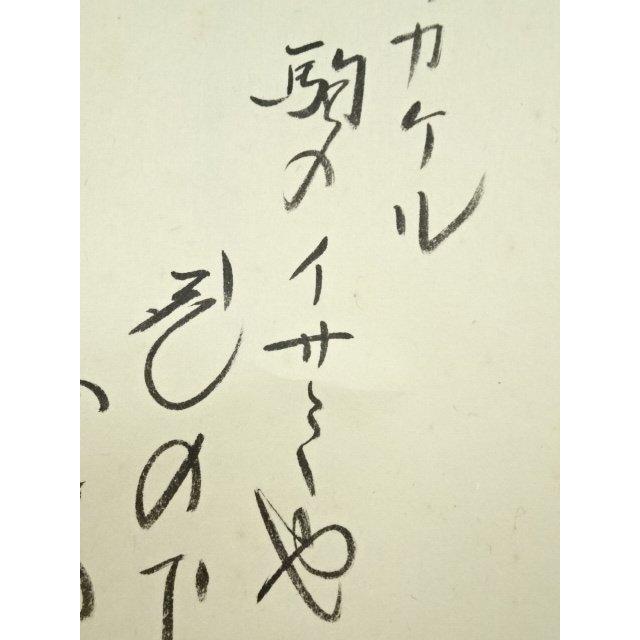 カケル
駒のイサミや
の下